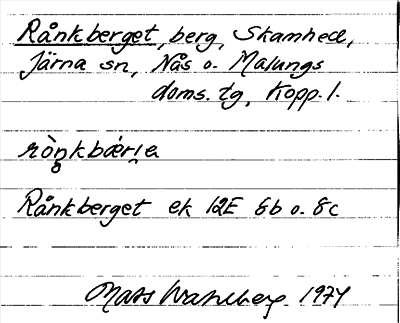 Rånkberget, berg, Skamhed,
Järna sn, Nås o. Malungs
doms. tg, Kopp. l.
rò̀ŋkbær̀i̯e
Rånkberget ek 12E 8b o. 8c
Mats Wahlberg 1974